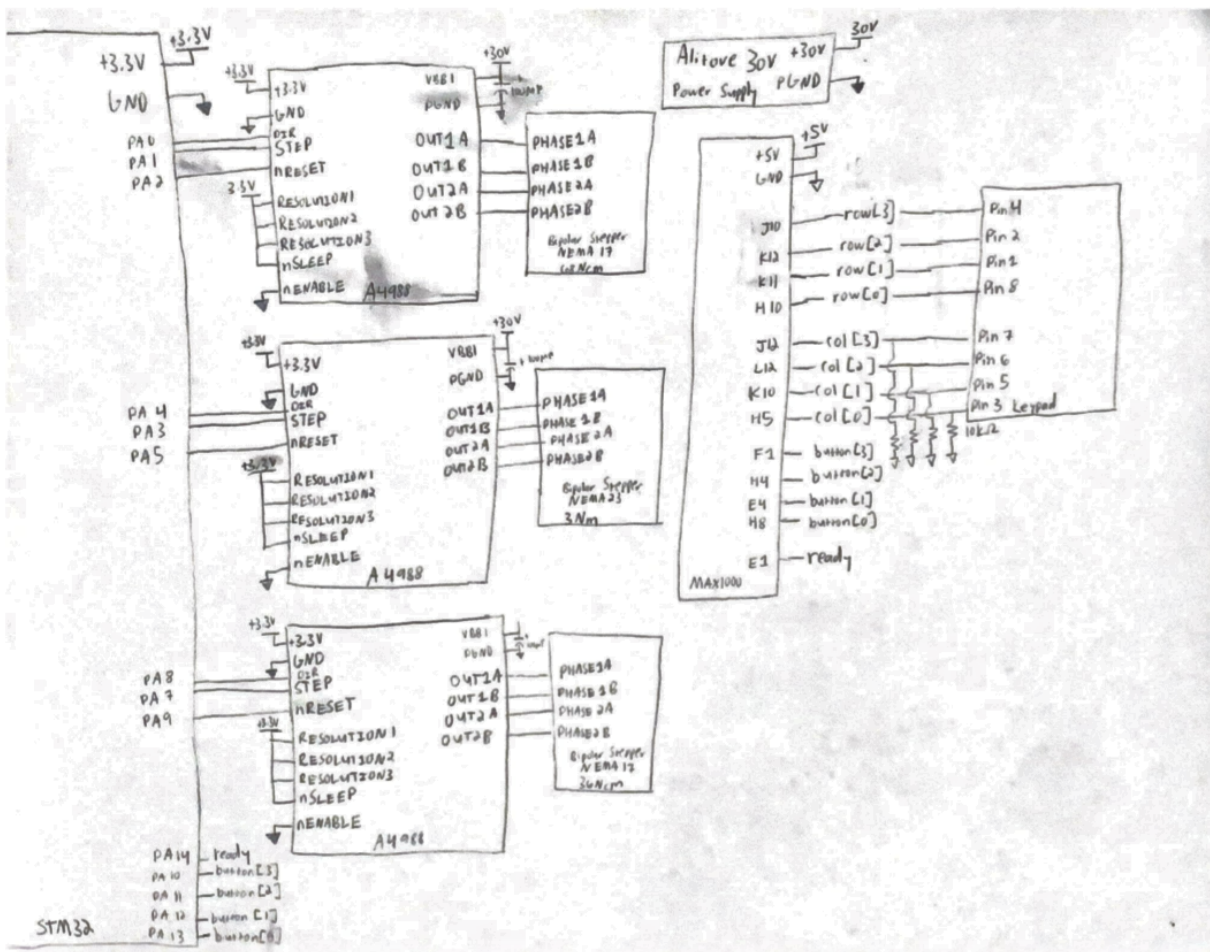 +3.3V
+3.3V
GND
PA0
PA1
PA2
+3.3V
+3.3V
GND
DIR
STEP
nRESET
3.3V
RESOLUTION1
RESOLUTION2
RESOLUTION3
nSLEEP
nENABLE
A4988
+30V
VBB1
PGND
+
100µF
OUT1A
OUT1B
OUT2A
OUT2B
PHASE1A
PHASE1B
PHASE2A
PHASE2B
Bipolar Stepper
NEMA 17
Alitove 30V
Power Supply
+30V
PGND
30V
PA4
PA3
PA5
+3.3V
+3.3V
GND
DIR
STEP
nRESET
+3.3V
RESOLUTION1
RESOLUTION2
RESOLUTION3
nSLEEP
nENABLE
A4988
+30V
VBB1
PGND
+
100µF
OUT1A
OUT1B
OUT2A
OUT2B
PHASE1A
PHASE1B
PHASE2A
PHASE2B
Bipolar Stepper
NEMA23
3Nm
PA8
PA7
PA9
+3.3V
+3.3V
GND
DIR
STEP
nRESET
+3.3V
RESOLUTION1
RESOLUTION2
RESOLUTION3
nSLEEP
nENABLE
A4988
VBB1
PGND
+
OUT1A
OUT1B
OUT2A
OUT2B
PHASE1A
PHASE1B
PHASE2A
PHASE2B
Bipolar Stepper
NEMA 17
36Ncm
PA14 ready
PA10 button[3]
PA11 button[2]
PA12 button[1]
PA13 button[0]
STM32
+5V
+5V
GND
J10 row[3] Pin 4
K12 row[2] Pin 2
K11 row[1] Pin 1
H10 row[0] Pin 8
J12 col[3] Pin 7
L12 col[2] Pin 6
K10 col[1] Pin 5
H5 col[0] Pin 3 Keypad
10kΩ
F1 button[3]
H4 button[2]
E4 button[1]
H8 button[0]
E1 ready
MAX1000